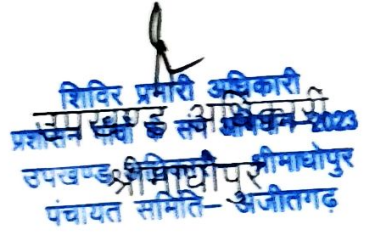 शिविर प्रभारी अधिकारी
उपखण्ड अधिकारी
प्रशासन गांवों के संग अभियान-2023
उपखण्ड अधिकारी श्रीमाधोपुर
श्रीमाधोपुर
पंचायत समिति- अजीतगढ़